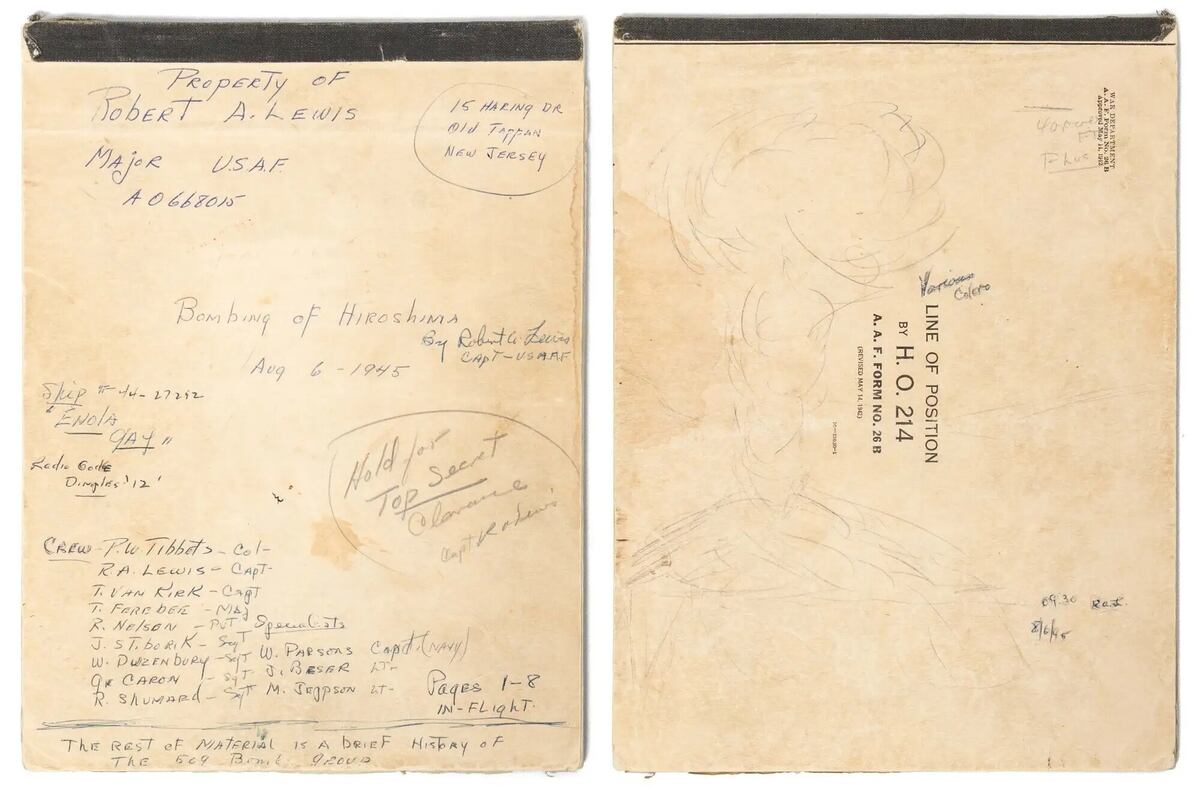 PROPERTY OF
ROBERT A. LEWIS
15 HARING DR
OLD TAPPAN
NEW JERSEY
MAJOR USAF.
AO668015
BOMBING OF HIROSHIMA
By Robert A. Lewis
CAPT-USAAF
AUG 6-1945
Ship #44-27292
"ENOLA
GAY"
Radio Code
Dimples '12'
Hold for
TOP Secret
Clearance
Capt R A Lewis
CREW - P.W. TIBBETS - COL-
R.A. LEWIS - CAPT-
T. VAN KIRK - CAPT
T. FEREBEE - MAJ
R. NELSON - PVT
J. STIBORIK - SGT
W. DUZENBURY - SGT
G. CARON - SGT
R. SHUMARD - SGT
Specialists
W. PARSONS CAPT. (NAVY)
J. BESER LT-
M. JEPPSON LT-
PAGES 1-8
IN-FLIGHT.
THE REST OF MATERIAL IS A BRIEF HISTORY OF
THE 509 BOMB. GROUP
WAR DEPARTMENT
A. A. F. Form No. 26 B
Approved May 14, 1942
Plus
Various
Colors
LINE OF POSITION
BY H. O. 214
A. A. F. FORM NO. 26 B
(REVISED MAY 14, 1942)
09:30 R.A.L.
8/6/45